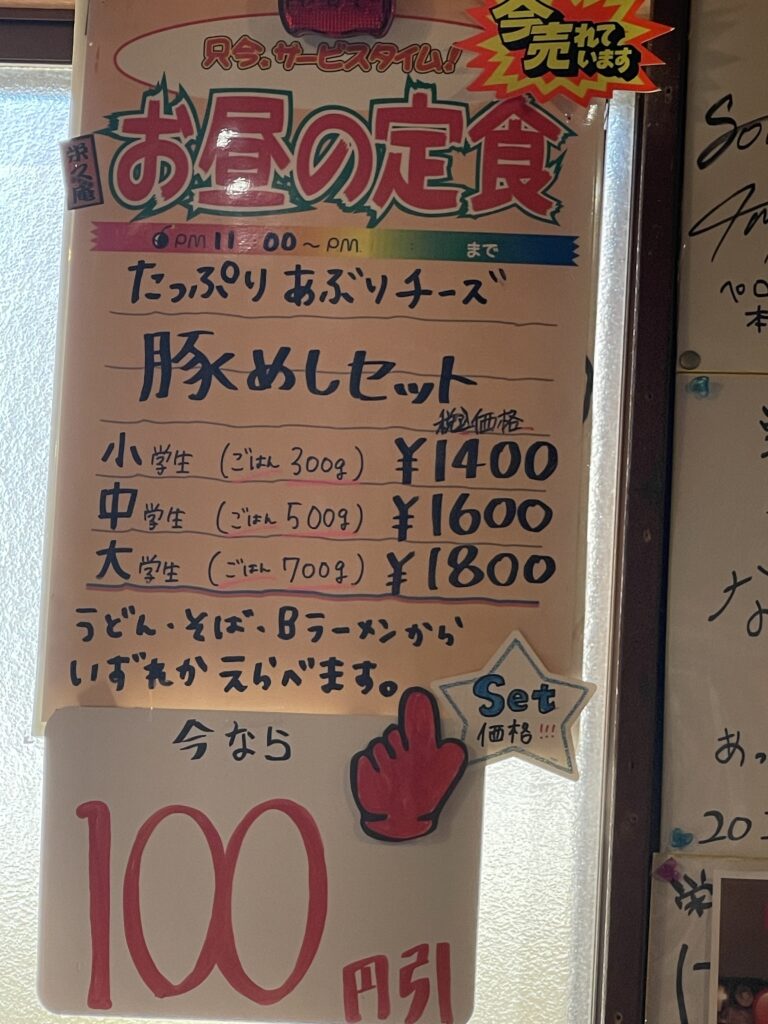 只今。サービスタイム!
今売れています
お昼の定食
浜之庵
PM 11:00〜PM まで
たっぷり あぶりチーズ
豚めしセット
税込価格
小学生 (ごはん 300g) ¥1400
中学生 (ごはん 500g) ¥1600
大学生 (ごはん 700g) ¥1800
うどん・そば・Bラーメンから
いずれか えらべます。
Set
価格!!!
今なら
100
円引
な
あっ